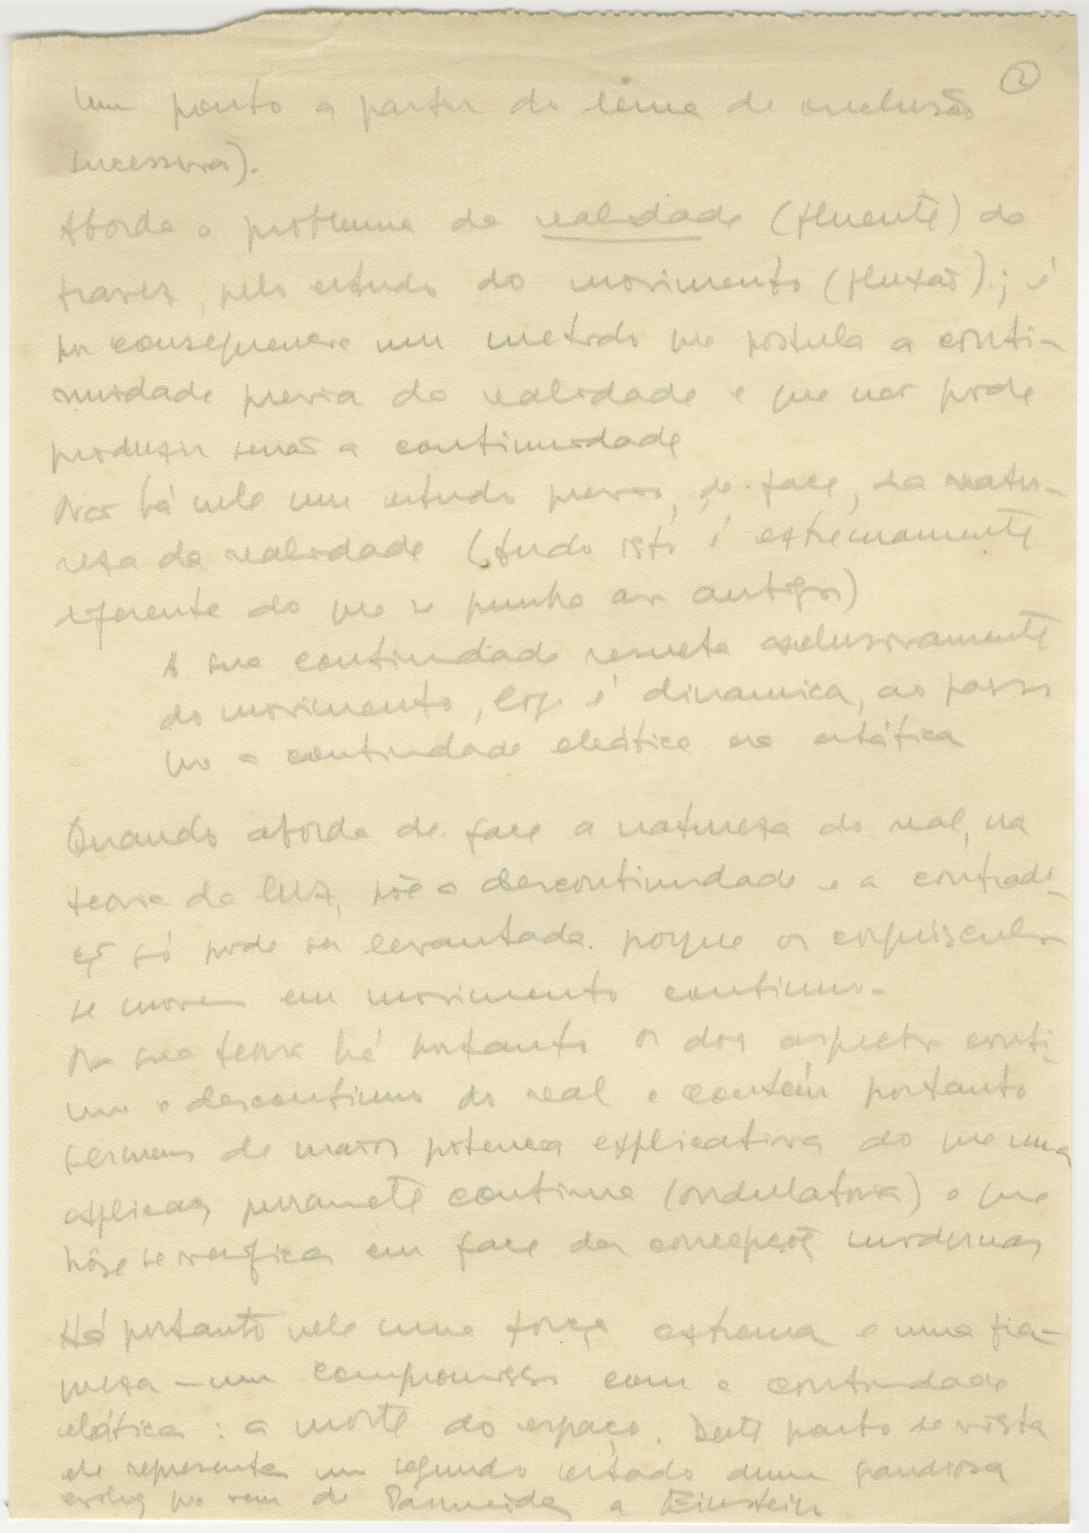 2
um ponto a partir do lema de exclusão
sucessiva).
Aborda o problema da realidade (fluente) do
travez, pelo estudo do movimento (fluxão); é
por consequencia um metodo que postula a conti-
nuidade previa da realidade e que não pode
produzir senão a continuidade
Não há nele um estudo previo, de face, da natu-
reza da realidade (tudo isto é extremamente
diferente do que se punha aos antigos)
A sua continuidade resulta exclusivamente
do movimento, logo é dinamica, ao passo
que a continuidade eleática era estática
Quando aborda de face a natureza do real, na
teoria da luz, põe a descontinuidade e a contradi-
ção só pode ser levantada porque os corpusculos
se movem em movimento continuo.
Na sua teoria há portanto os dois aspectos conti-
nuo e descontinuo do real e contém portanto
germens de maior potencia explicativa do que uma
explicação puramente continua (ondulatoria) o que
hoje se verifica em face das concepções modernas
Há portanto nele uma força extrema e uma fra-
queza – um compromisso com a continuidade
eleática: a morte do espaço. Deste ponto de vista
ele representa um segundo estado duma grandiosa
evolução que vem de Parmenides a Einstein